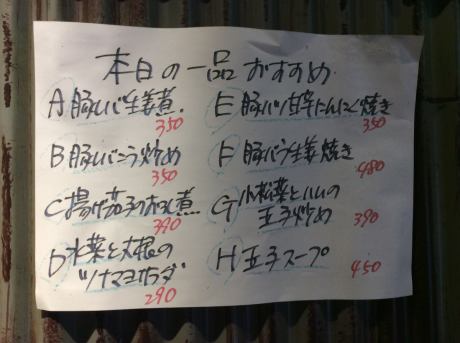 本日の一品おすすめ
A 豚レバ生姜煮
350
B 豚レバニラ炒め
350
C 揚げ茄子の煮
390
D 水菜と大根の
ツナマヨサラダ
290
E 豚レバ甘辛にんにく焼き
350
F 豚バラ生姜焼き
480
G 小松菜とハムの
玉子炒め
390
H 玉子スープ
450